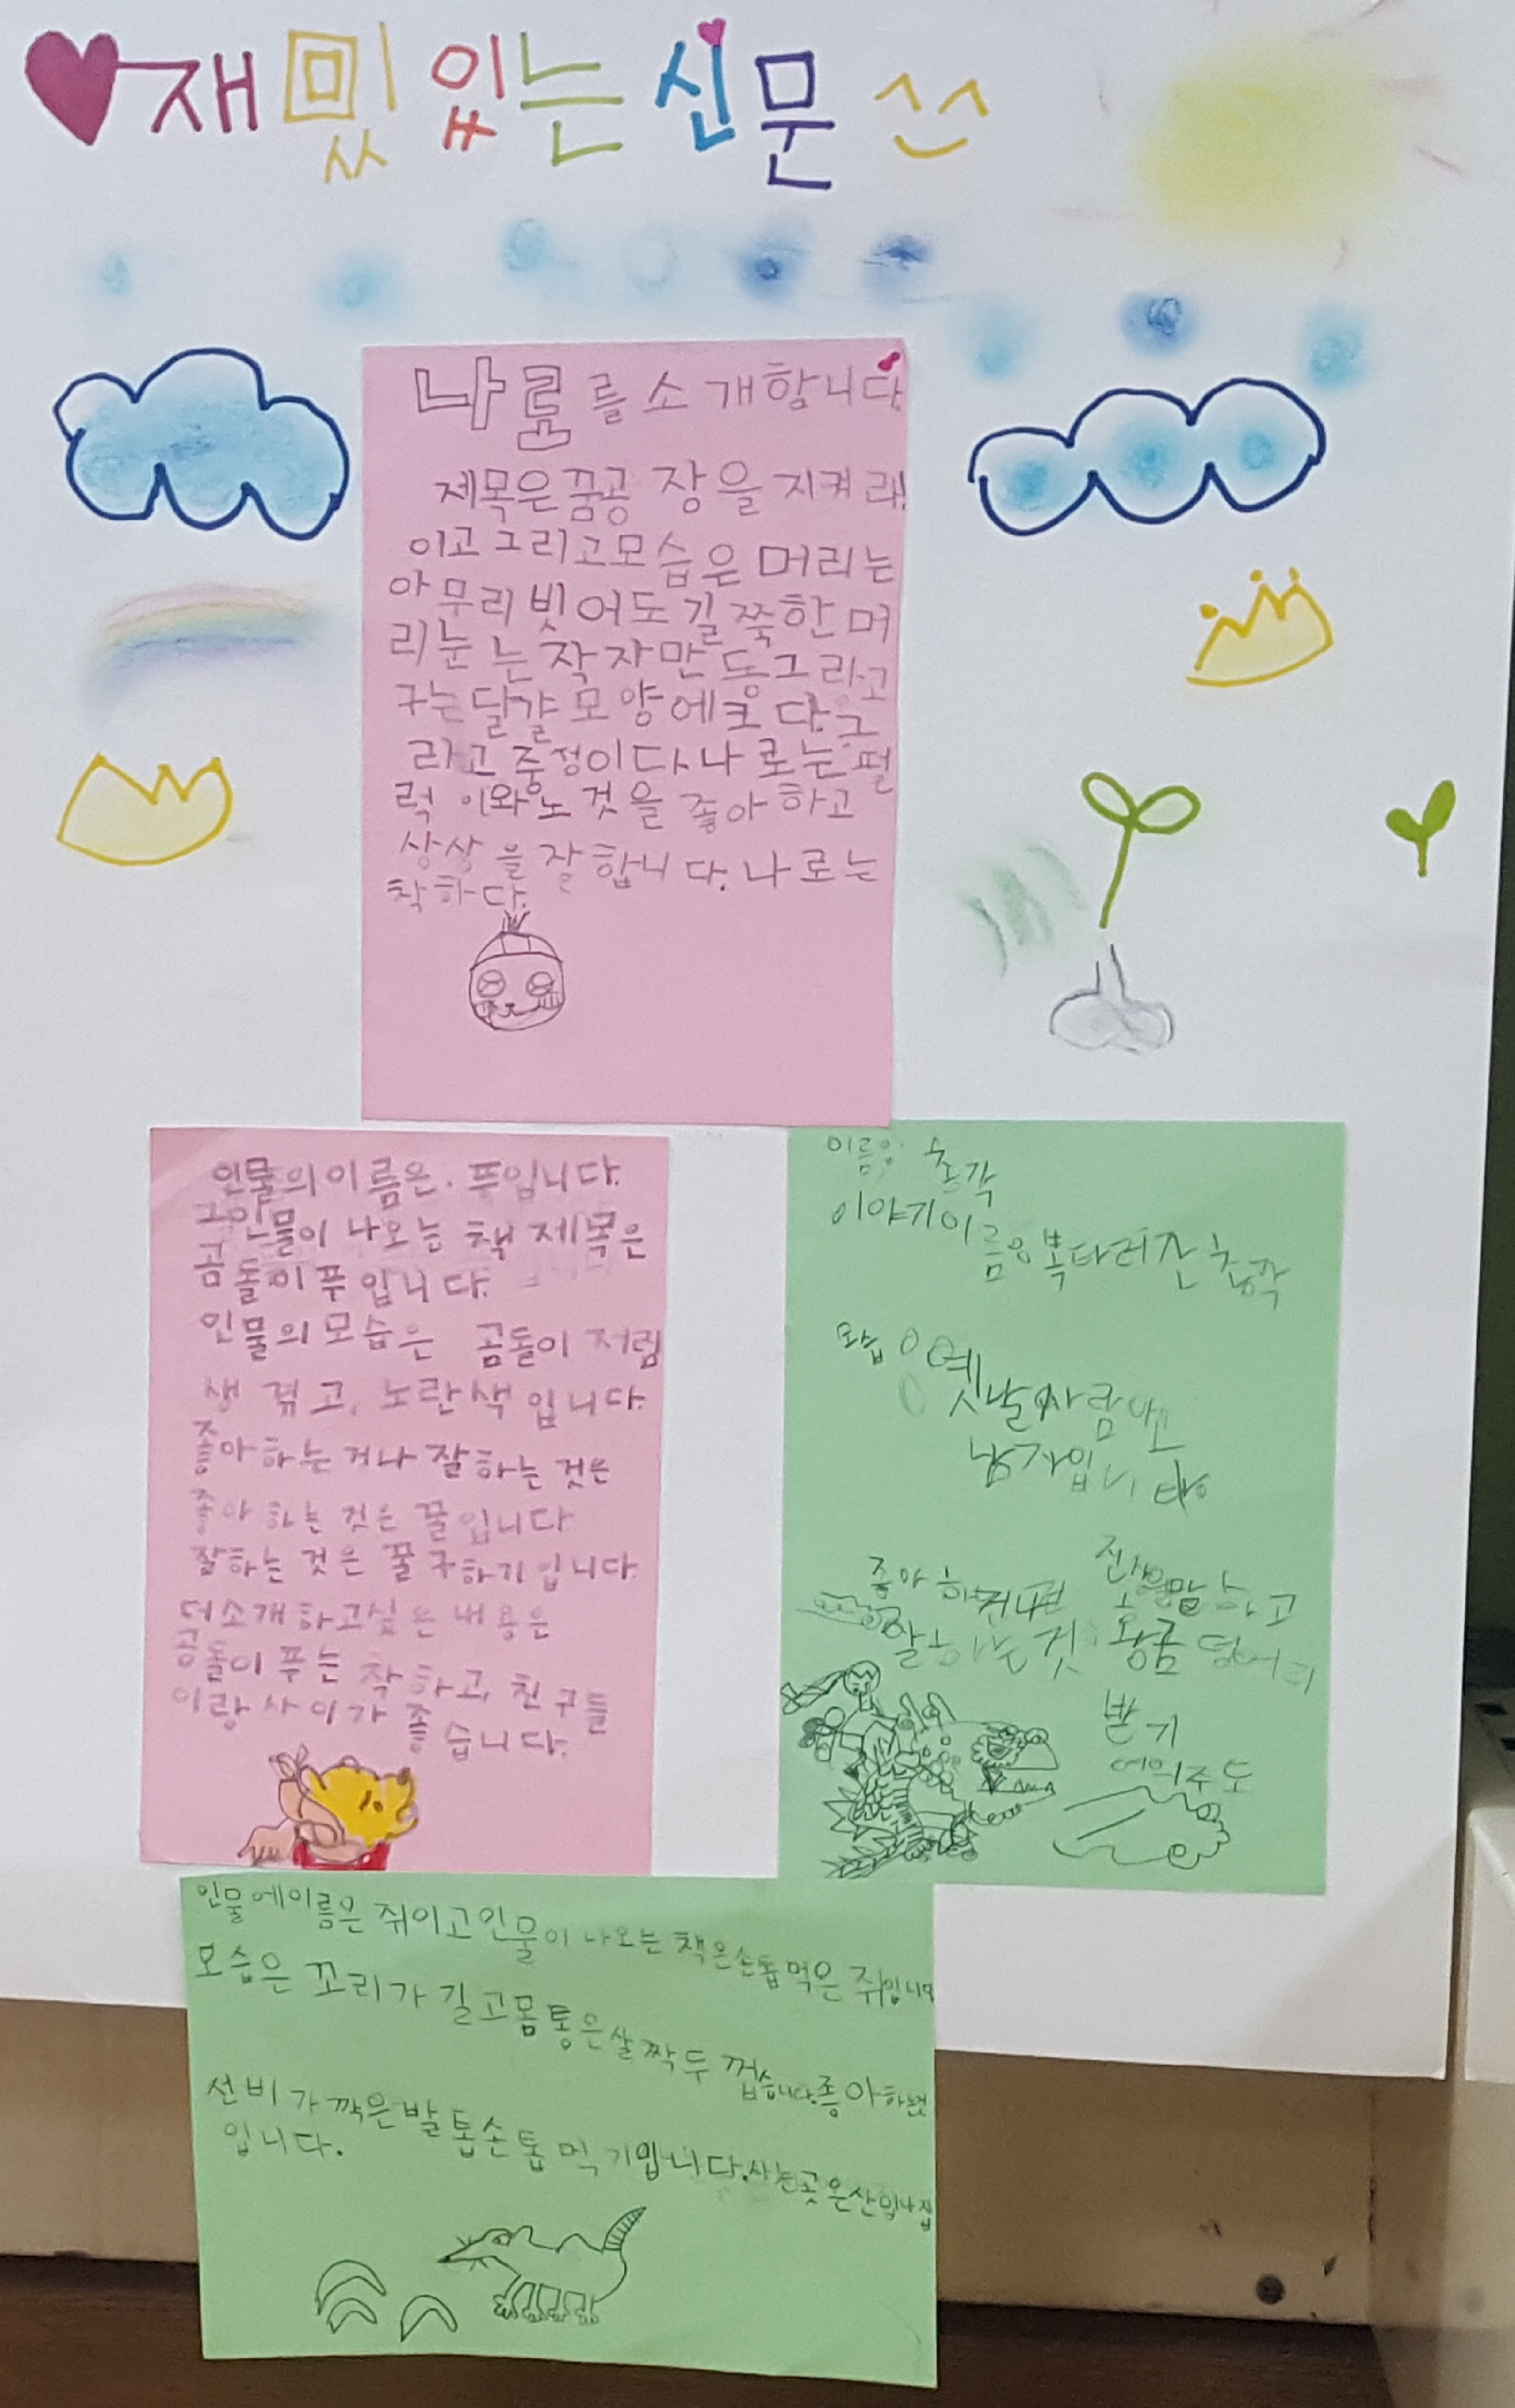 재밌있는신문
나로를소개합니다.
제목은꿈공장을지켜라!
이고그리고모습은머리는
아무리빗어도길쭉한머
리눈는작자만동그라고
구는달걀모양에코다.그
라고중정이다.나로는펄
럭이와노것을좋아하고
상상을잘합니다.나로는
착하다.
인물의이름은.푸입니다.
그인물이나오는책제목은
곰돌이푸입니다.
인물의모습은 곰돌이처럼
생겪고,노란색입니다.
좋아하는거나잘하는것은
좋아하는것은꿀입니다
잘하는것은꿀구하기입니다.
더소개하고싶은내용은
곰돌이푸는착하고,친구들
이랑사이가좋습니다.
이름은:총각
이야기이
름은복타러간총각
모습
옛날사람이고
남자입니다.
좋아하
잘하는것:황금덩어리
받기
여의주도
인물에이름은쥐이고인물이나오는책은손톱먹은쥐입니다
모습은꼬리가길고몸통은살짝두껍습니다.좋아하는것
선비가깍은발톱손톱먹기입니다.사는곳은산입나집
입니다.